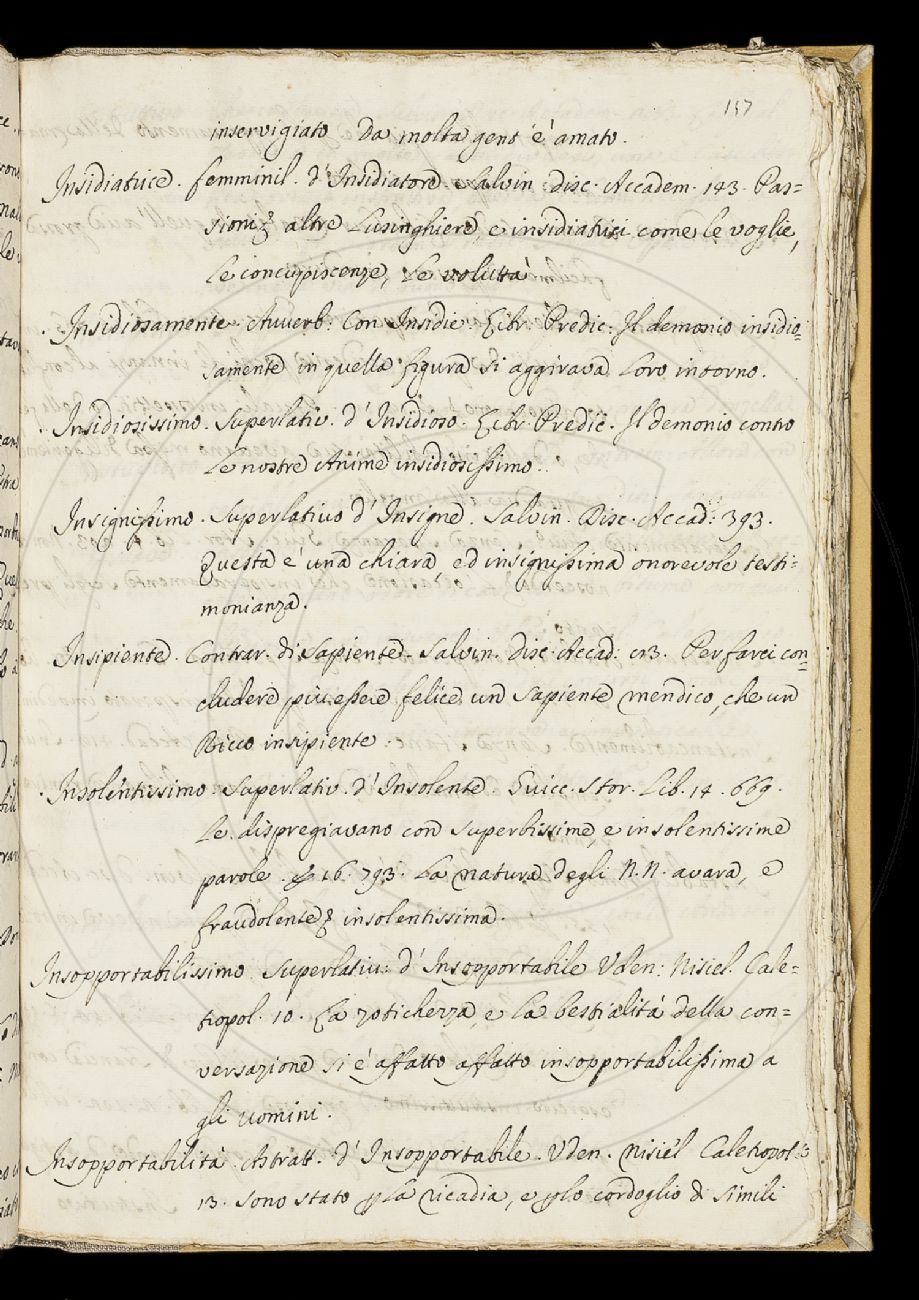 157
inservigiato da molta gent'è amato.
Insidiatrice. femminil. d'Insidiatore Salvin disc. Accadem. 143. Pas=
sioni altre Lusinghiere, e insidiatrici come le voglie,
Le concupiscenze, Le voluttà
Insidiosamente Avverb: Con Insidie. Libr. Predic: Il demonio insidio=
samente in quella figura si aggirava Loro intorno.
Insidiosissimo. Superlativ. d'Insidioso. Libr. Predic. Il demonio contro
Le nostre Anime insidiosissimo.
Insignissimo. Superlativo d'Insigne. Salvin. Disc. Accad: 393.
Questa è una chiara, ed insignissima onorevole testi=
monianza.
Insipiente. Contrar. di Sapiente. Salvin. disc. Accad: Per farci con=
cludere più essere felice un Sapiente mendico, che un
Ricco insipiente.
Insolentissimo. Superlativ. d'Insolente. Guicc. Stor. Lib. 14. 669.
Le dispregiavano con superbissime, e insolentissime
parole. E 16. 793. La natura degli N.N. avara, e
fraudolente insolentissima.
Insopportabilissimo Superlativ: d'Insopportabile Vden: Nisiel. Cale=
tropol. 10. La zotichezza, e la bestialità della con=
versazione si è affatto affatto insopportabilissima a
gli uomini.
Insopportabilità. Astratt. d'Insopportabile. Vden. Nisiel Caletropol:
13. sono stato p La ricadia, e plo cordoglio di simili